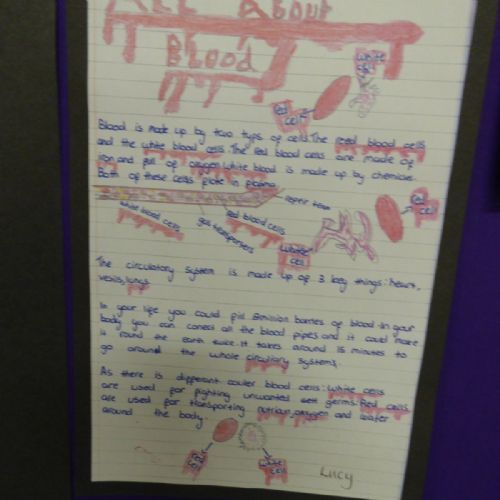 All About
Blood
White cell
Red cell
Blood is made up by two typs of cells. The reed blood cells
and the white blood cells. The Red blood cells are made of
iron and full of oxygen. White blood is made up by chemicle.
Both of these cells flote in plasma.
repair team
Red cell
white blood cells
gas transporters
red blood cells
White cell
The circulatory system is made up of 3 key things: heart,
vesils, lungs.
In your life you could fill barrles of blood. In your
body you can conect all the blood pipes and it could make
is round the earth twice. It takes around 15 minutes to
go around the whole systems.
As there is different couler blood cells: White cells
are used for fighting unwanted germs. Red cells
are used for transporting oxygen and water
around the body.
Red cell
White cell
Lucy